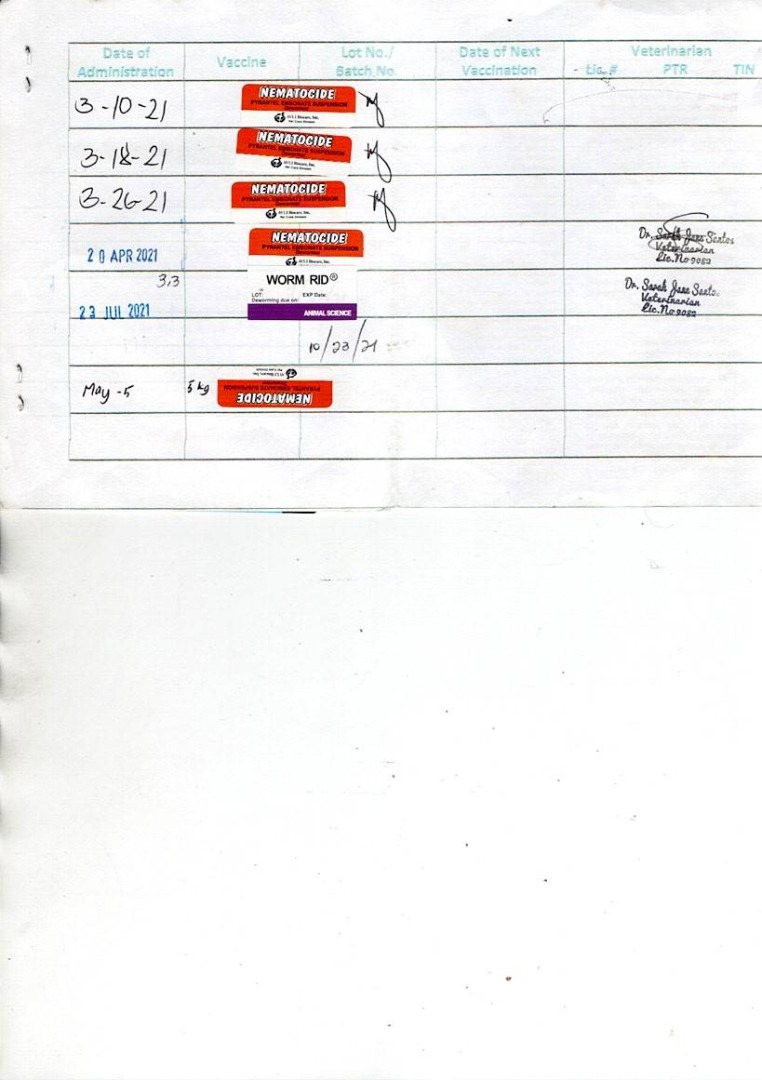 Date of Administration
Vaccine
Lot No./ Batch No.
Date of Next Vaccination
Veterinarian
Lic. # PTR TIN
3-10-21
NEMATOCIDE
PYRANTEL EMBONATE SUSPENSION
Dewormer
3-18-21
NEMATOCIDE
PYRANTEL EMBONATE SUSPENSION
Dewormer
3-26-21
NEMATOCIDE
PYRANTEL EMBONATE SUSPENSION
Dewormer
20 APR 2021
NEMATOCIDE
PYRANTEL EMBONATE SUSPENSION
Dewormer
Dr. Sarah Jane Santos
Veterinarian
Lic. No 9082
3,3
23 JUL 2021
WORM RID®
LOT: EXP Date:
Deworming due on:
ANIMAL SCIENCE
Dr. Sarah Jane Santos
Veterinarian
Lic. No 9082
10/23/21
May -5
5 kg
NEMATOCIDE
PYRANTEL EMBONATE SUSPENSION
Dewormer